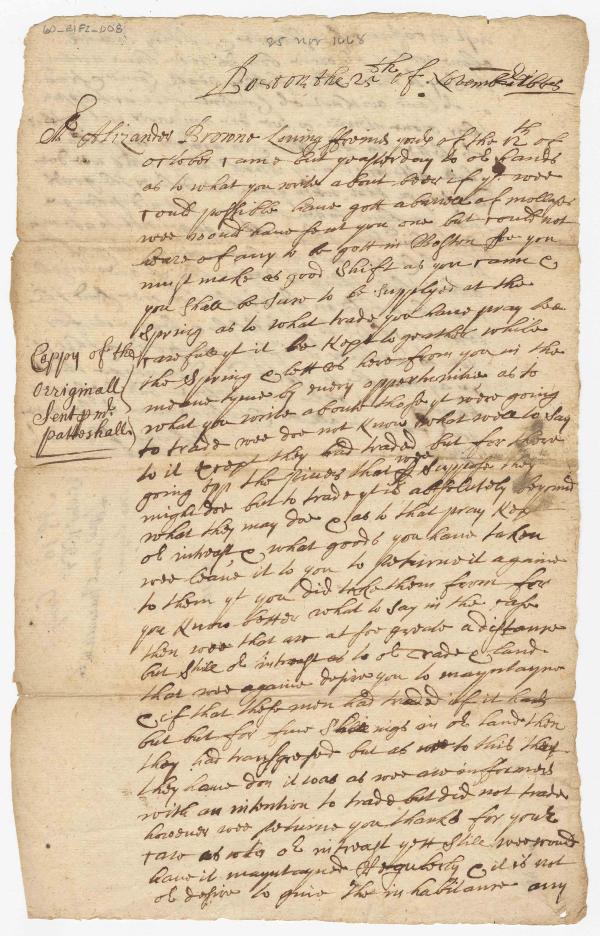 25 Nov 1668
Boston the 25th of November 1668
Mr Allexander Browne Loving ffreind yours of the 12th of
october came but yeasterday to or hands
as to what you write about beer if yt wee
could possible have gott a barrell of mollases
wee would have sent you one but could not
heare of any to be gott in Boston soe you
must make as good shift as you cann &
you shall be sure to be supplyed at the
Spring as to what trade you have pray bee
carefull yt it be kept to geather while
the Spring & lett us heare from you in the
meane tyme by every opportunitie as to
what you write about those yt were going
to trade wee doe not know what well to say
to it except they had traded but for there
going upp the River that wee suppose they
might doe but to trade yt is absolutely beyond
what they may doe & as to that pray kep
or intrest & what goods you have taken
wee leave it to you to returne it againe
to them yt you did take them from for
you know better what to say in the case
then wee that are at soe greate a distance
but still or intrest as to or trade & land
that wee againe desire you to mayntayne
& if that these men had traded if it had
but but for five shillings in or land then
they had transgresed but as to this they
they have don it was as wee are informed
with an intention to trade but did not trade
however wee returne you thanks for your
care as to or intreast yett still wee would
have it mayntayned Regulerly & it is not
or desire to give the inhabitance any
Coppy of the
orriginall
Sent p mr
Patteshall